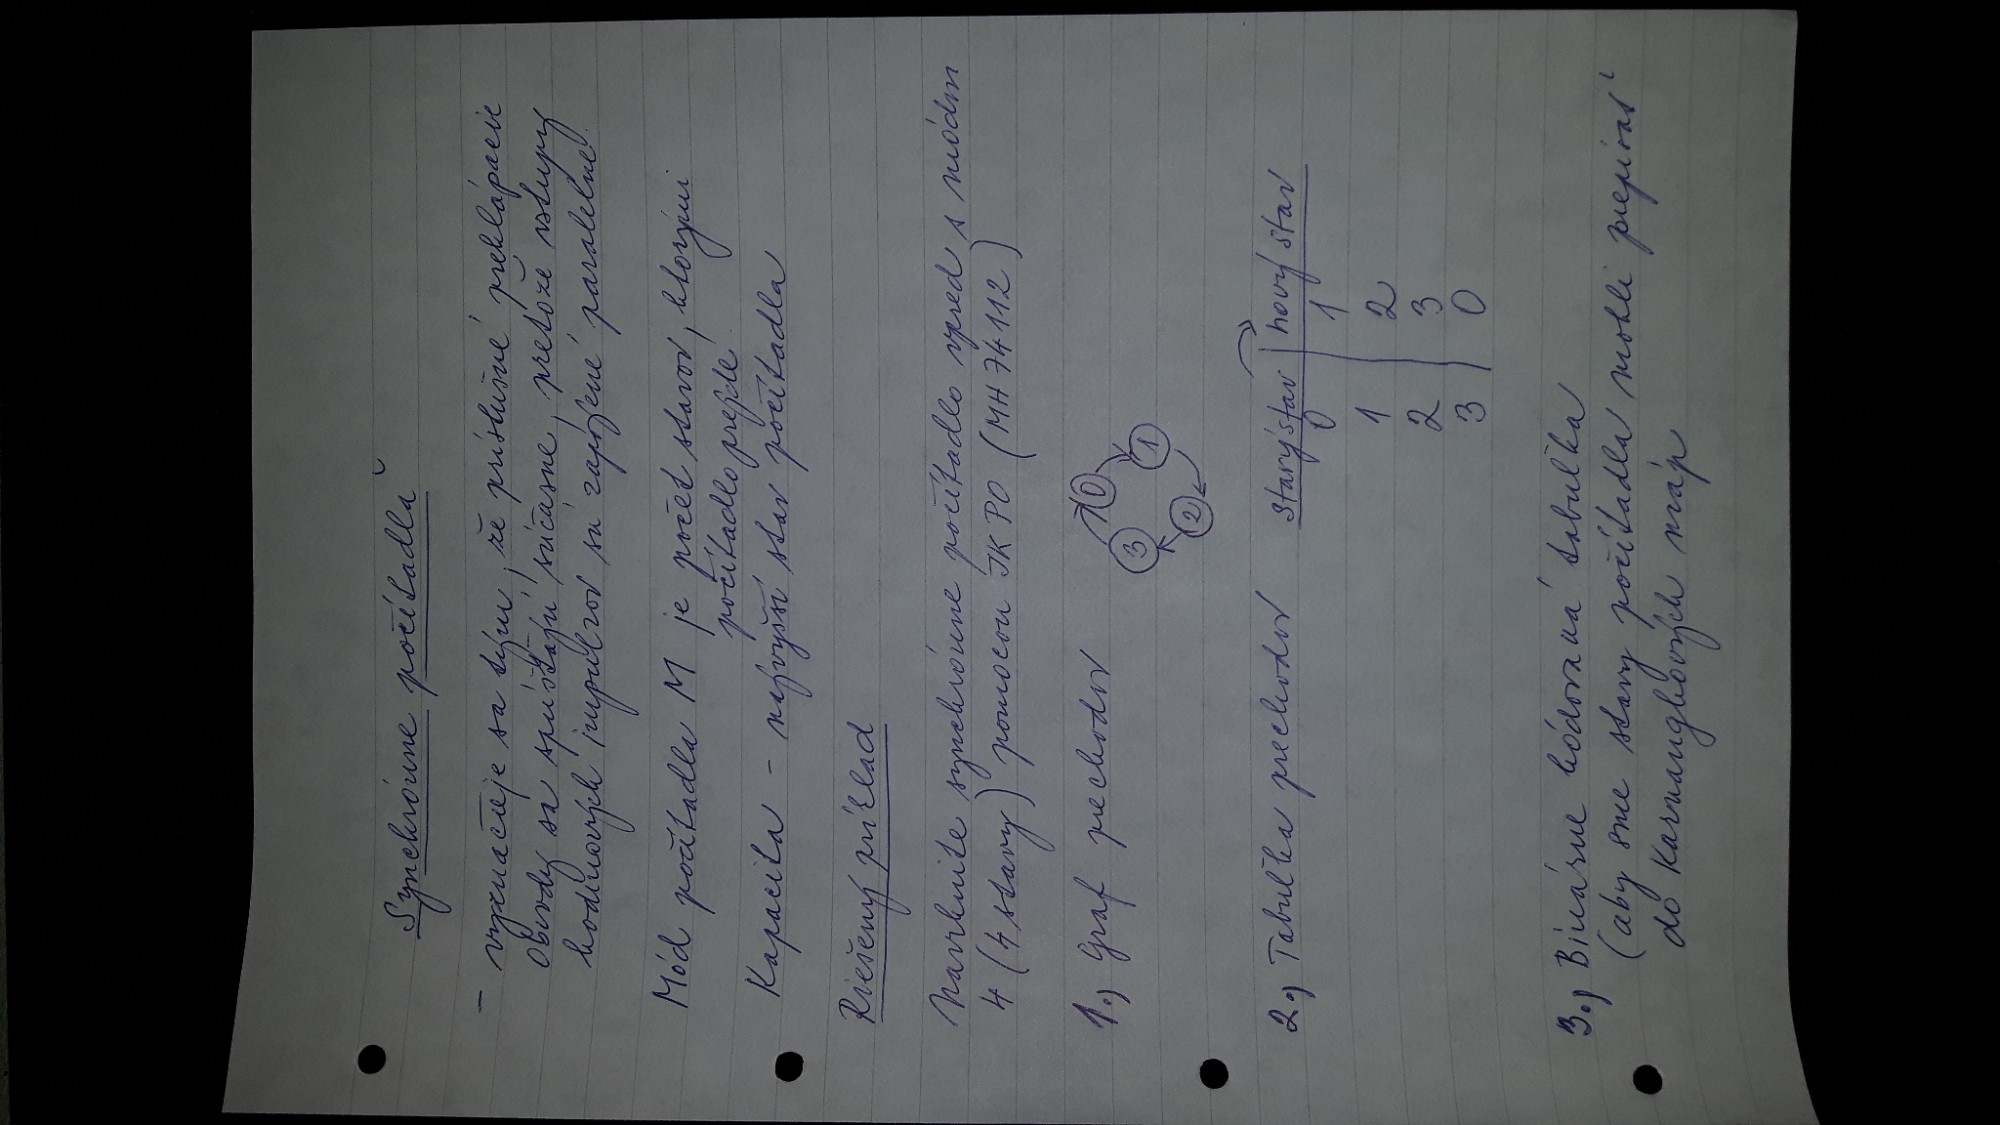 Synchrónne počítadlá
- vyznačuje sa tým, že príslušné preklápacie
obvody sa spúšťajú súčasne, pretože vstupy
hodinových impulzov sú zapojené paralelne.
Mód počítadla M je počet stavov, ktorými
počítadlo prejde.
Kapacita - najvyšší stav počítadla
Riešený príklad
Navrhnite synchrónne počítadlo vpred s módom
4 (4 stavy) pomocou JK PO (MH 74112)
1.) Graf prechodov
0
3
1
2
2.) Tabuľka prechodov starý stav nový stav
0 1
1 2
2 3
3 0
3.) Binárne kódovaná tabuľka
(aby sme stavy počítadla mohli prepísať
do Karnaughových máp